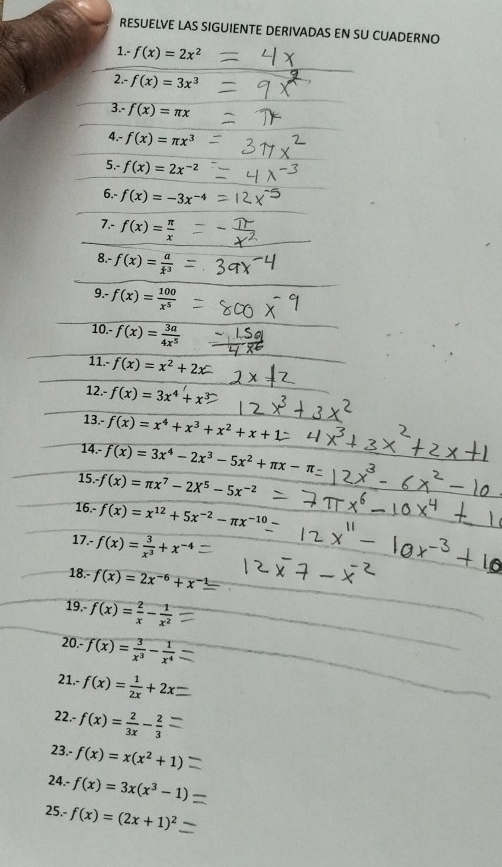 RESUELVE LAS SIGUIENTE DERIVADAS EN SU CUADERNO
1.- f(x) = 2x² = 4x
2.- f(x) = 3x³ = 9x²
3.- f(x) = πx = π
4.- f(x) = πx³ = 3πx²
5.- f(x) = 2x⁻² = 4x⁻³
6.- f(x) = −3x⁻⁴ = 12x⁻⁵
7.- f(x) = π/x = − π/x²
8.- f(x) = a/x³ = 3ax⁻⁴
9.- f(x) = 100/x⁵ = 800x⁻⁹
10.- f(x) = 3a/4x⁵ − 15a/4x⁶
11.- f(x) = x² + 2x = 2x+2
12.- f(x) = 3x⁴ + x³ = 12x³ + 3x²
13.- f(x) = x⁴ + x³ + x² + x + 1 = 4x³ + 3x² + 2x + 1
14.- f(x) = 3x⁴ − 2x³ − 5x² + πx − π = 12x³ − 6x² − 10
15.- f(x) = πx⁷ − 2X⁵ − 5x⁻² = 7πx⁶ − 10x⁴ + 10
16.- f(x) = x¹² + 5x⁻² − πx⁻¹⁰ = 12x¹¹ − 10x⁻³ + 10
17.- f(x) = 3/x³ + x⁻⁴ =
18.- f(x) = 2x⁻⁶ + x⁻¹ = 12x⁻7 − x⁻²
19.- f(x) = 2/x − 1/x² =
20.- f(x) = 3/x³ − 1/x⁴ =
21.- f(x) = 1/2x + 2x =
22.- f(x) = 2/3x − 2/3 =
23.- f(x) = x(x² + 1) =
24.- f(x) = 3x(x³ − 1) =
25.- f(x) = (2x + 1)² =